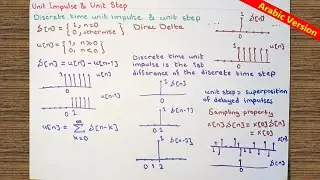 Unit Impulse & Unit Step
Discrete time unit impulse & unit step
δ[n] = { 1, n=0
{ 0, otherwise } Dirac Delta
u[n] = { 1, n≥0
{ 0, n<0
δ[n] = u[n] - u[n-1]
Discrete time unit
impulse is the 1st
difference of the discrete time step
u[n]
u[n-1]
δ[n]
u[n] = ∞
Σ δ[n-k]
k=0
0 1 2
unit step = superposition
of delayed impulses
Sampling property
x[n] δ[n] = x[0] δ[n]
= x[0]
x[n]
δ[n]
Arabic Version